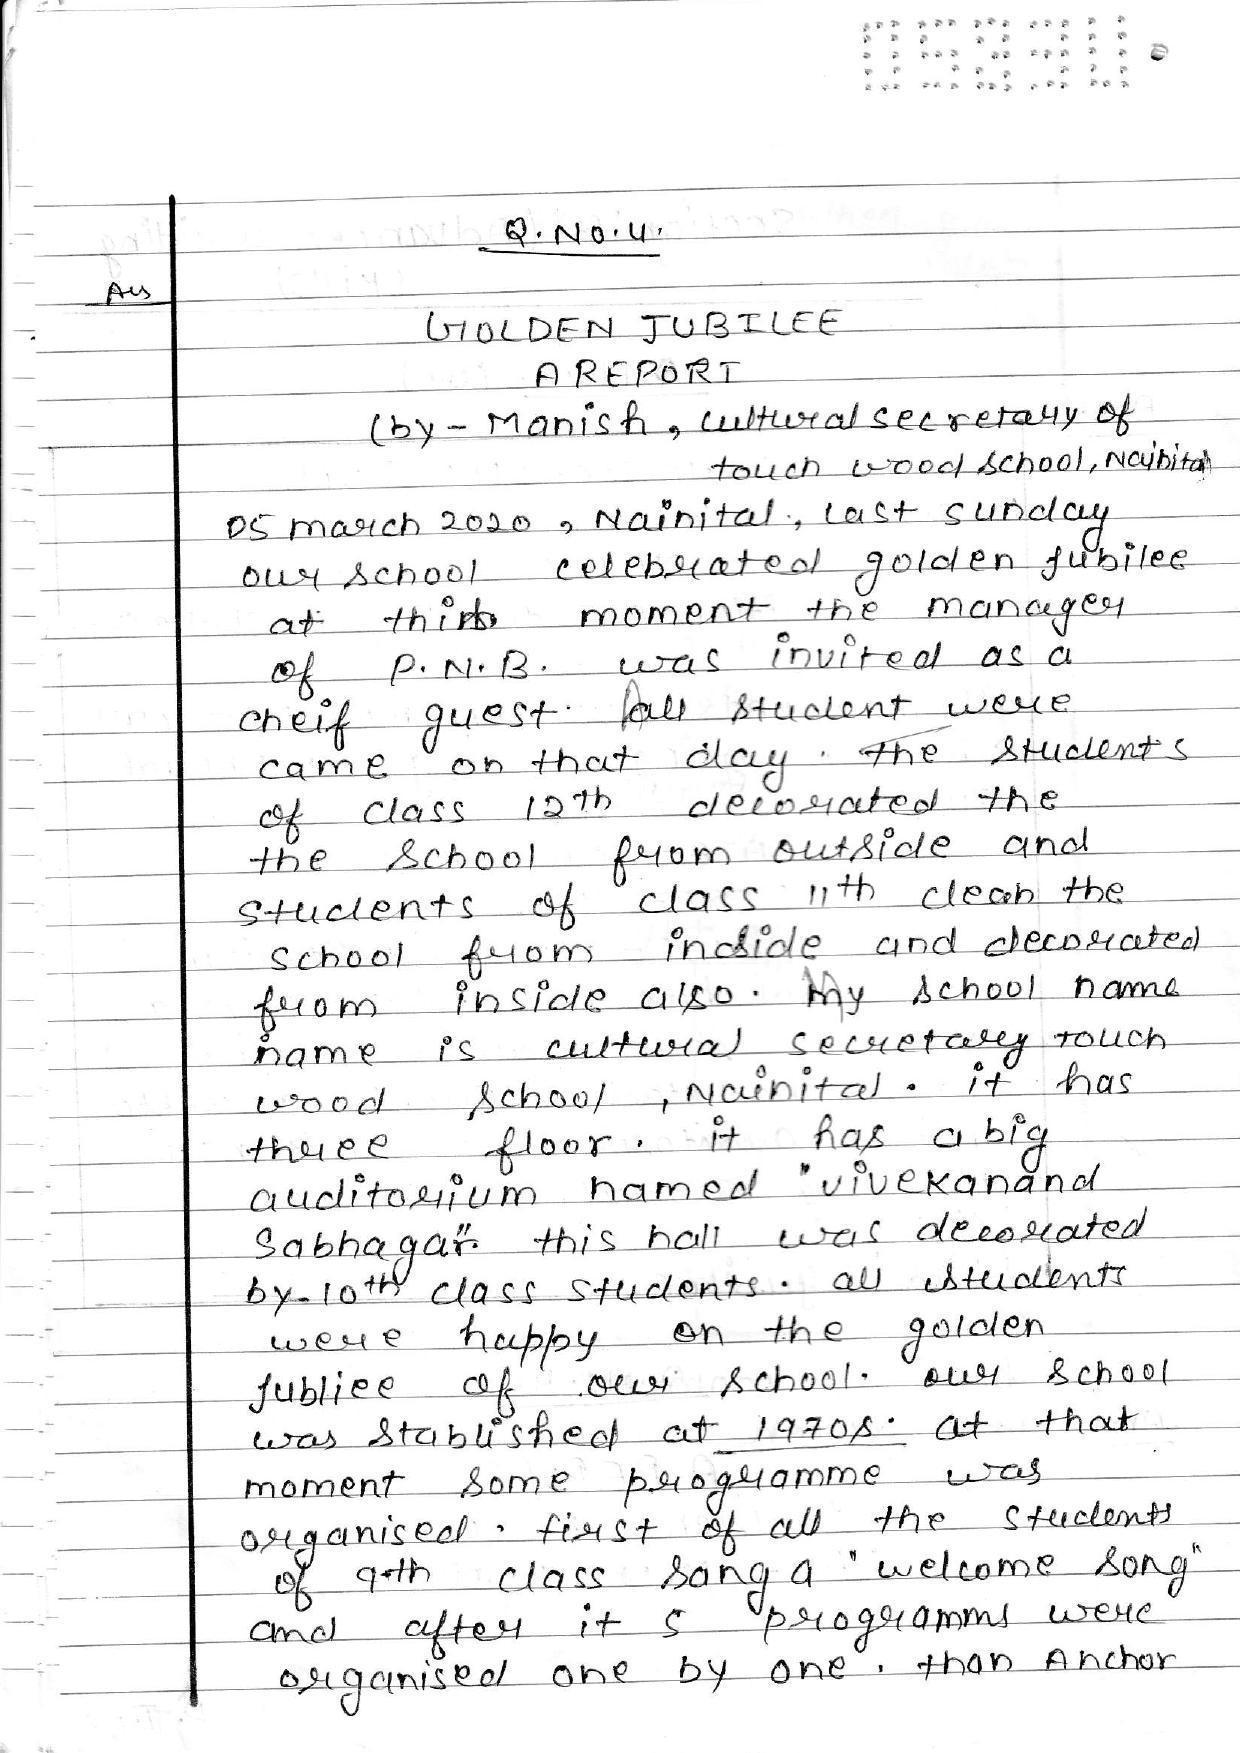 Q. No. 4.
Ans
GOLDEN JUBILEE
A REPORT
(by - Manish, cultural secretary of
touch wood school, Nainital
05 march 2020, Nainital., Last sunday
our school celebrated golden jubilee
at this moment the manager
of P.N.B. was invited as a
cheif guest. all student were
came on that day. The students
of class 12th decorated the
the school from outside and
students of class 11th clean the
school from indside and decorated
from inside also. My school name
name is cultural secretary touch
wood school, Nainital. it has
three floor. it has a big
auditorium named "vivekanand
Sabhagar". this hall was decorated
by-10th class students. all students
were happy on the golden
jubliee of our school. our school
was stablished at 1970s. at that
moment some programme was
organised. first of all the students
of 9th class sang a "welcome song"
and after it 5 programms were
organised one by one. than Anchor